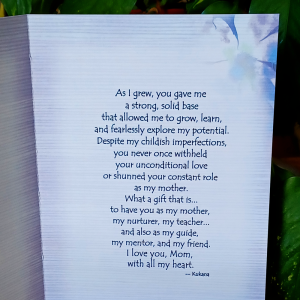 As I grew, you gave me
a strong, solid base
that allowed me to grow, learn,
and fearlessly explore my potential.
Despite my childish imperfections,
you never once withheld
your unconditional love
or shunned your constant role
as my mother.
What a gift that is...
to have you as my mother,
my nurturer, my teacher...
and also as my guide,
my mentor, and my friend.
I love you, Mom,
with all my heart.
— Kukana